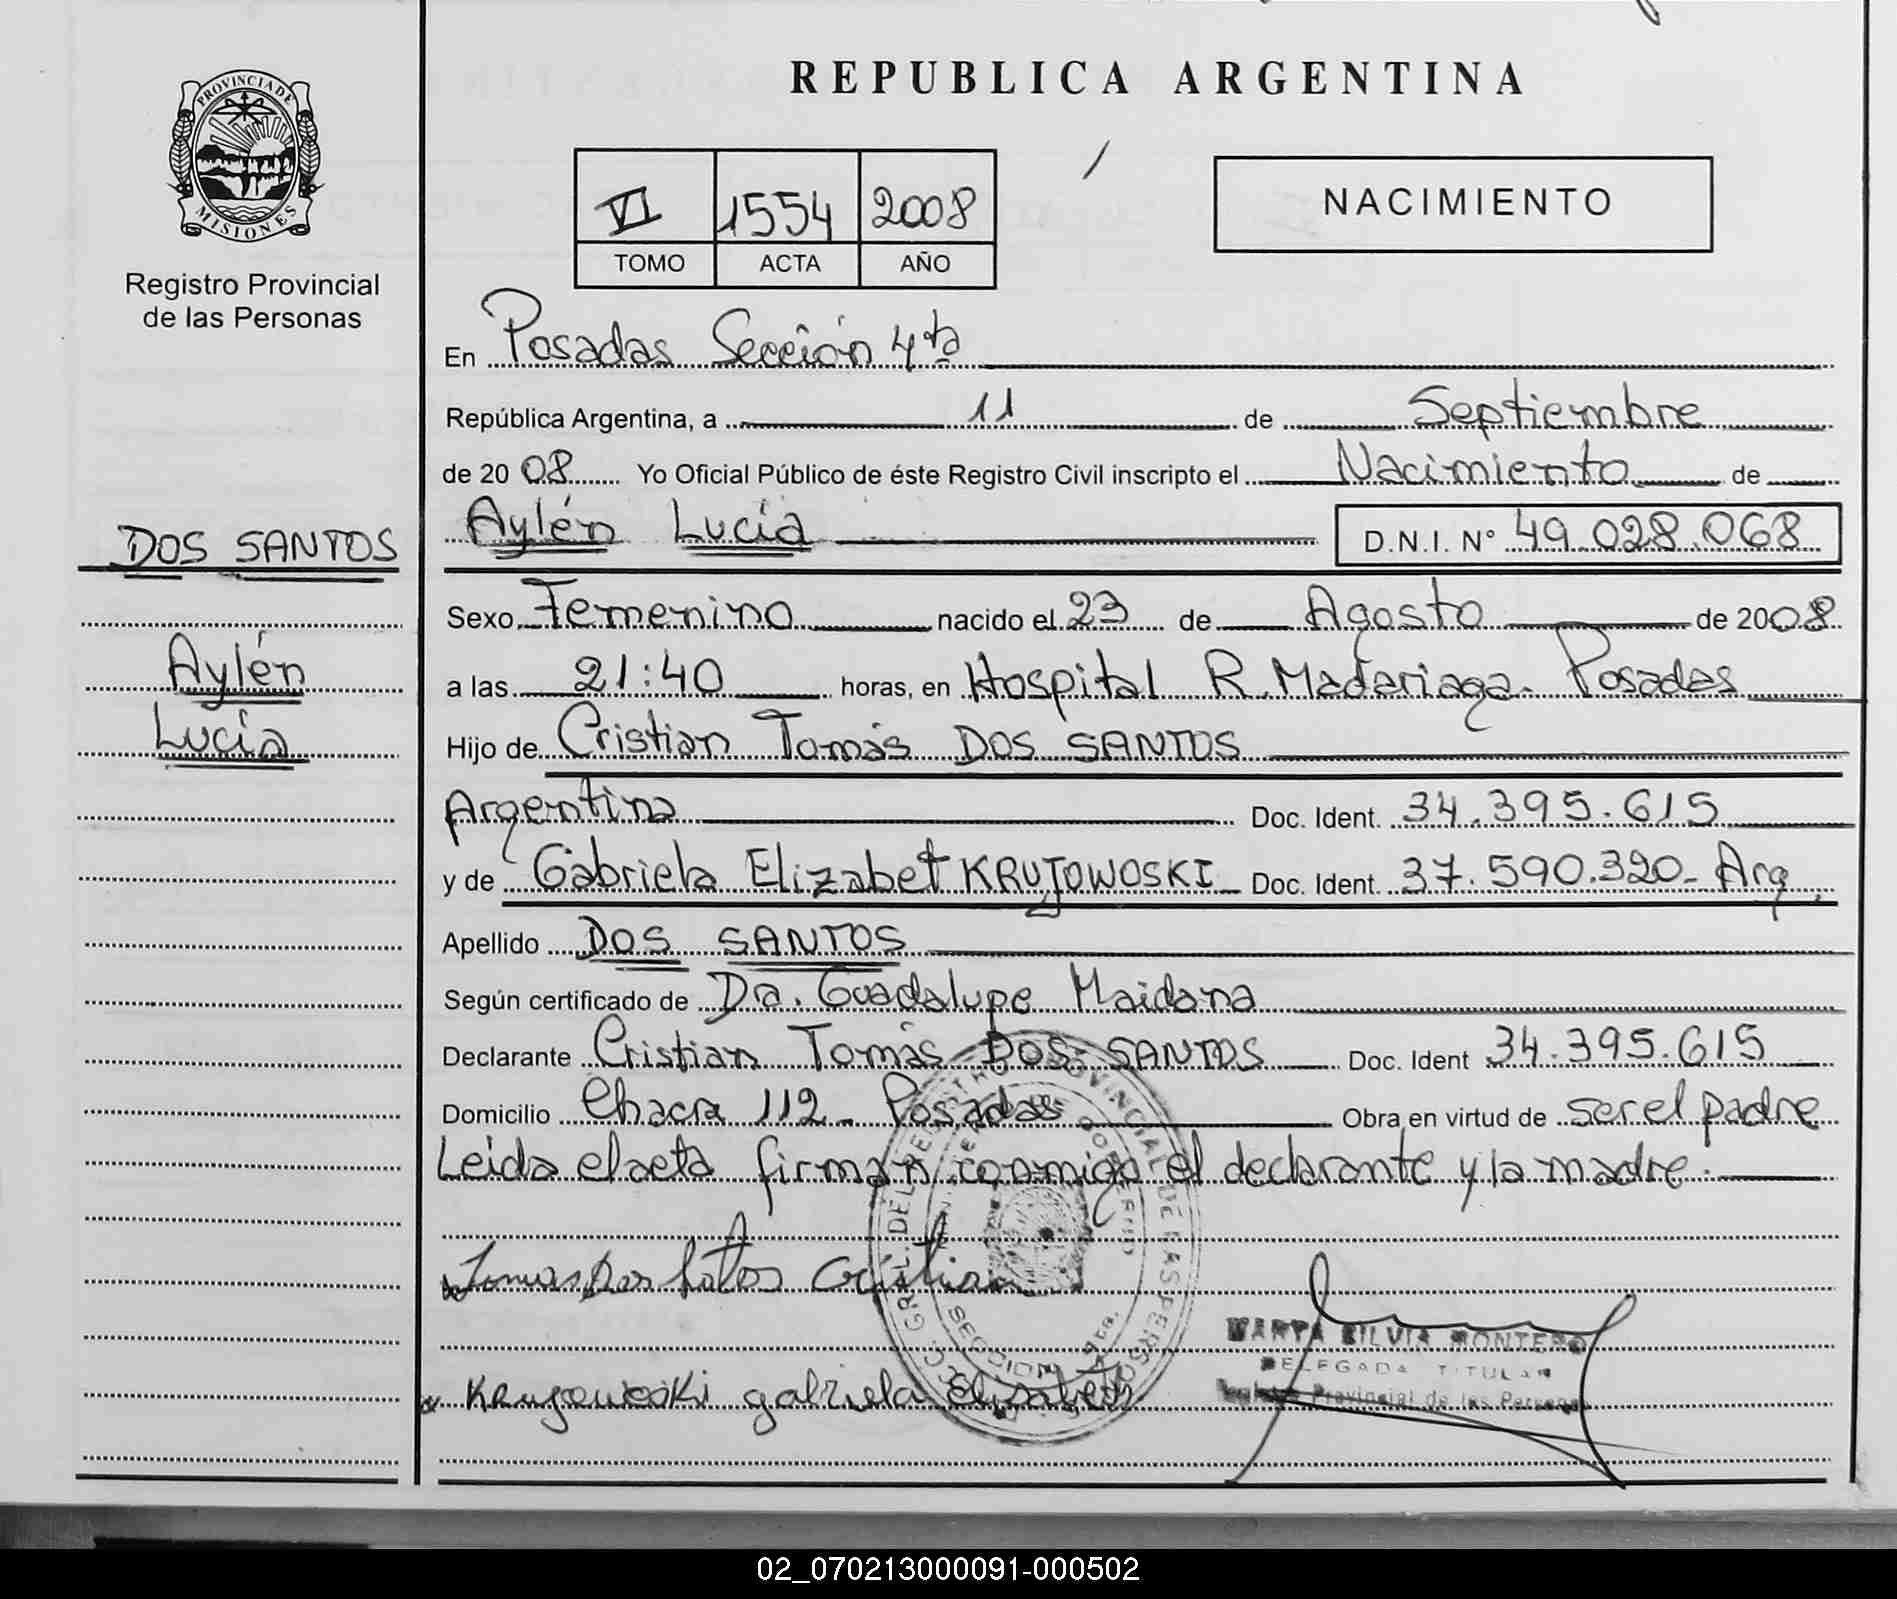 REPUBLICA ARGENTINA
PROVINCIA DE
MISIONES
Registro Provincial
de las Personas
VI 1554 2008
TOMO ACTA AÑO
NACIMIENTO
En Posadas Sección 4ta
República Argentina, a 11 de Septiembre
de 2008 Yo Oficial Público de éste Registro Civil inscripto el Nacimiento de
DOS SANTOS
Aylén
Lucía
Aylén Lucía D.N.I. N° 49.028.068
Sexo Femenino nacido el 23 de Agosto de 2008
a las 21:40 horas, en Hospital R. Madariaga. Posadas
Hijo de Cristian Tomás DOS SANTOS
Argentina Doc. Ident. 34.395.615
y de Gabriela Elizabet KRUJOWOSKI Doc. Ident. 37.590.320- Arg.
Apellido DOS SANTOS
Según certificado de Dra. Guadalupe Maidana
Declarante Cristian Tomás DOS SANTOS Doc. Ident 34.395.615
Domicilio Chacra 112 - Posadas Obra en virtud de ser el padre
Leida el acta firman conmigo el declarante y la madre.
Tomas Dos Santos Cristian
MARTA SILVIA MONTERO
DELEGADA TITULAR
Registro Provincial de las Personas
Krujowoski gabriela Elizabeth
02_070213000091-000502